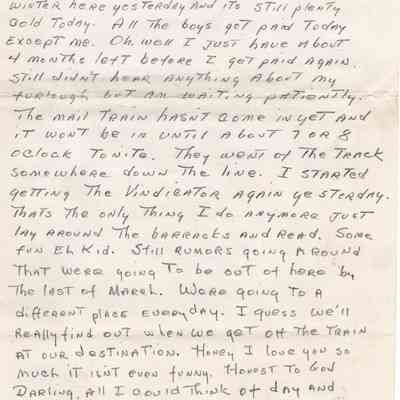 WINTER HERE YESTERDAY AND ITS STILL PLENTY
COLD TODAY. ALL THE BOYS GOT PAID TODAY
EXCEPT ME. OH, WELL I JUST HAVE ABOUT
4 MONTHS LEFT BEFORE I GET PAID AGAIN.
STILL DIDN'T HEAR ANYTHING ABOUT MY
furlough but AM WAITING PATIENTLY.
THE MAIL TRAIN HASN'T COME IN YET AND
IT WON'T BE IN UNTIL ABOUT 7 OR 8
OCLOCK TONITE. THEY WENT OF THE TRACK
SOMEWHERE DOWN THE LINE. I STARTED
GETTING THE VINDICATOR AGAIN YESTERDAY.
THATS THE ONLY THING I DO ANYMORE JUST
LAY AROUND THE BARRACKS AND READ. SOME
FUN EH KID. STILL RUMORS GOING AROUND
THAT WERE GOING TO BE OUT OF HERE BY
THE LAST OF MARCH. WERE GOING TO A
DIFFERENT PLACE EVERYDAY. I GUESS WE'LL
REALLY FIND OUT WHEN WE GET OFF THE TRAIN
AT OUR DESTINATION. HONEY I LOVE YOU SO
MUCH IT ISN'T EVEN FUNNY. HONEST TO GOD
DARLING, ALL I COULD THINK OF DAY AND